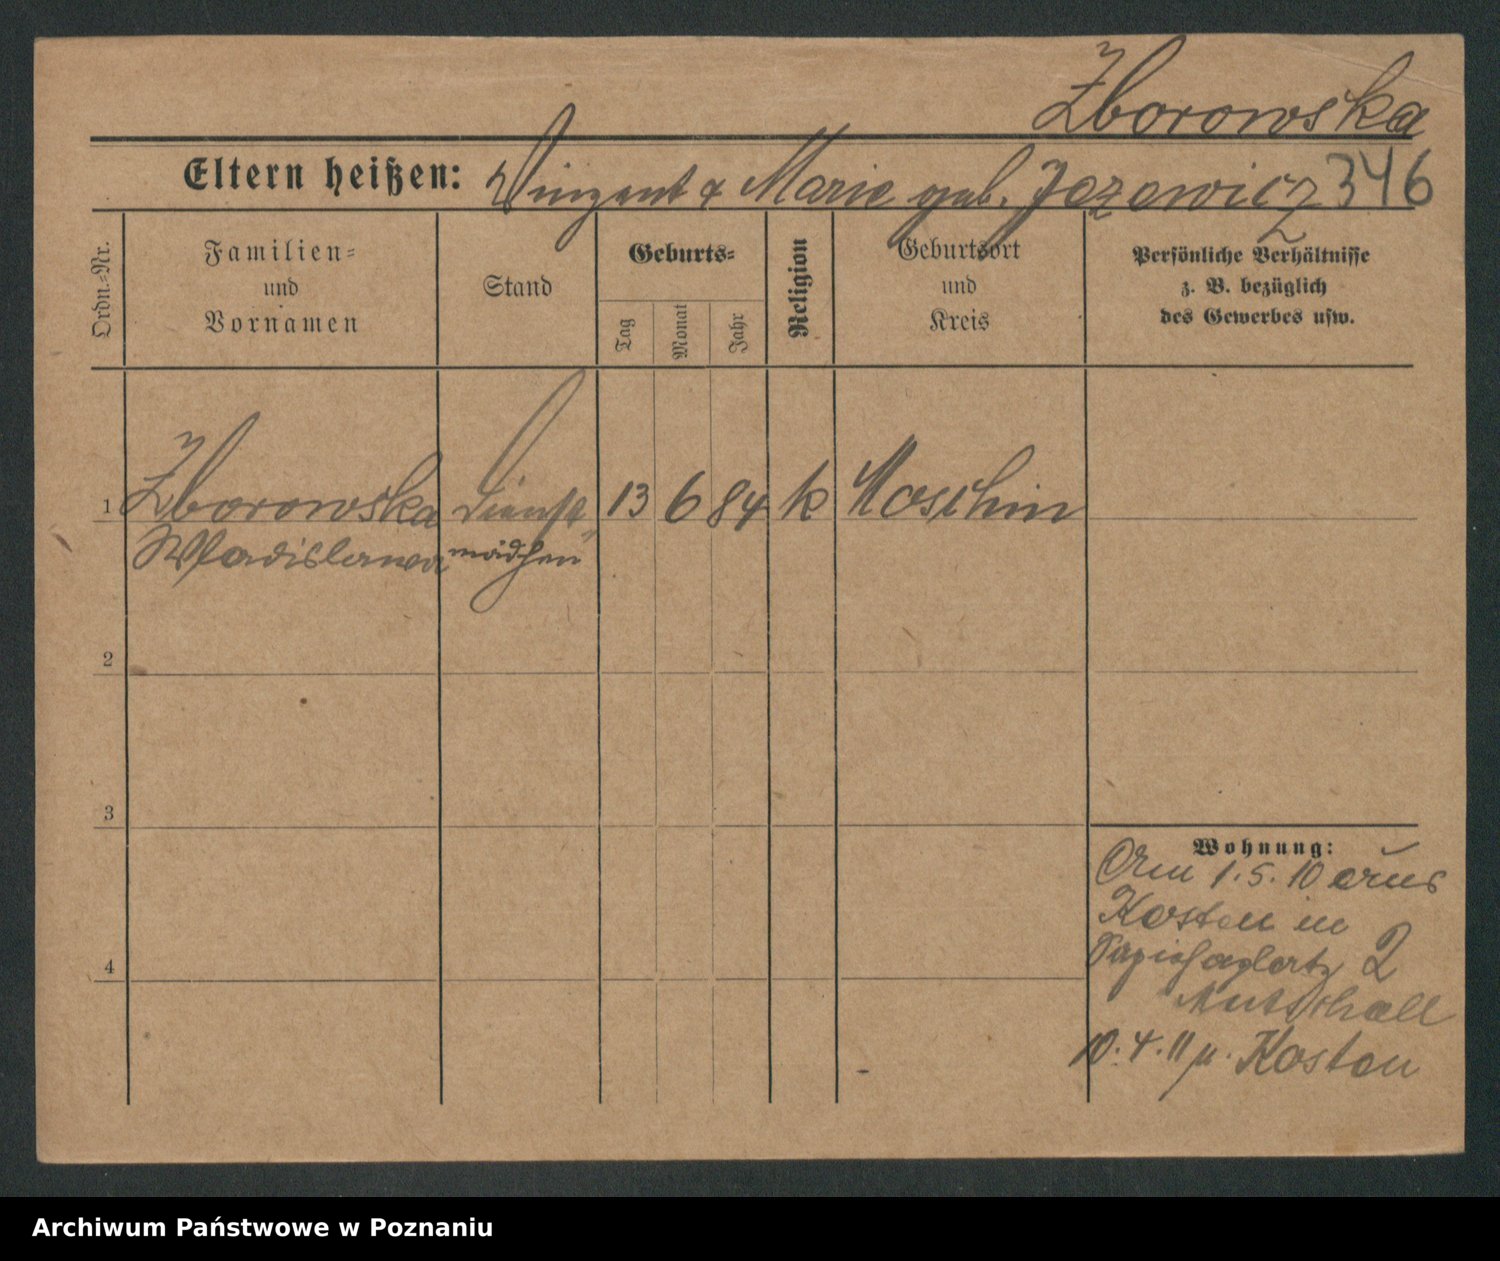 Zborowska
Eltern heißen: Vinzent & Marie geb. Jezewicz 346
Ordn.-Nr.
Familien- und Vornamen
Stand
Geburts-
Tag
Monat
Jahr
Religion
Geburtsort und Kreis
Persönliche Verhältnisse
z. B. bezüglich
des Gewerbes usw.
1 Zborowska Dienst 13 6 84 k Moschin
Wladislawa mädchen
2
3
4
Wohnung:
Am 1.5.10 aus
Kosten in
2
10.4.11 n. Kosten
Archiwum Państwowe w Poznaniu